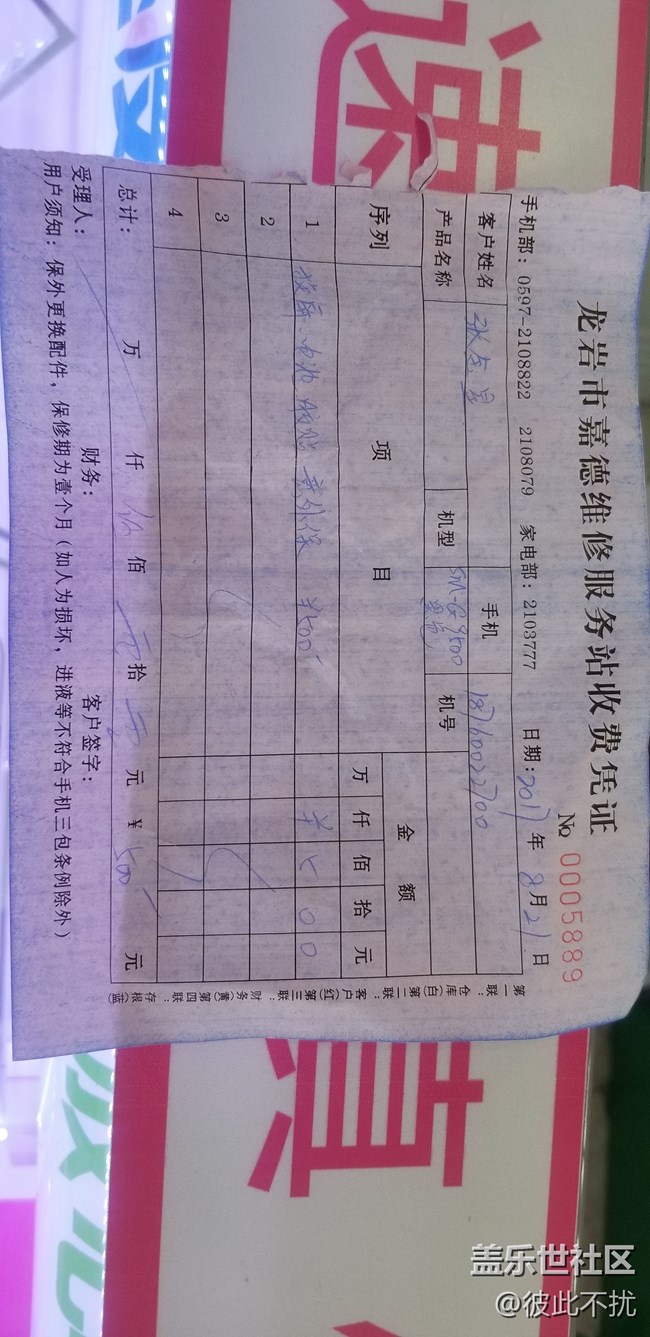 龙岩市嘉德维修服务站收费凭证
No 0005889
手机部：0597-2108822 2108079 家电部：2103777 日期：2017年8月21日
客户姓名 手机 18760022700
产品名称 机型 SM-G9500 机号
序列 项目 金额
万 仟 佰 拾 元
1 ¥500 ¥ 5 0 0
2
3
4
总计： 万 仟 伍 佰 拾 元 ¥ 500 元
受理人： 财务： 客户签字：
用户须知：保外更换配件，保修期为壹个月（如人为损坏，进液等不符合手机三包条例除外）
第一联：仓库(白)第二联：客户(红)第三联：财务(黄)第四联：存根(蓝)
速
真
盖乐世社区
@彼此不扰